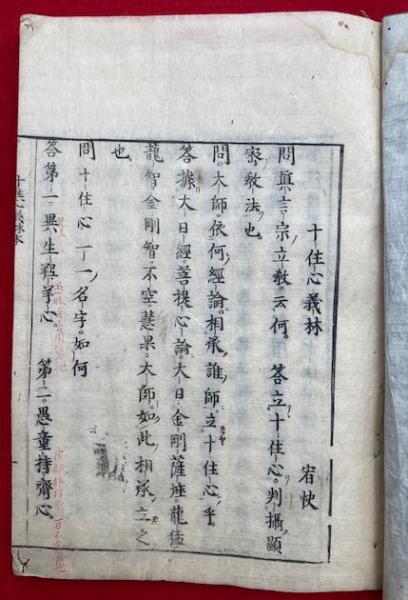 十住心義林　宥快
問眞言宗立教云何　答立十住心判攝顯
密教法也
問大師依何經論相承誰師立十住心乎
答據大日經菩提心論大日金剛薩埵龍猛
龍智金剛智不空慧果大師如此相承立之
也
問十住心一一名字如何
答第一異生羝羊心　第二愚童持齋心
十住心義林本